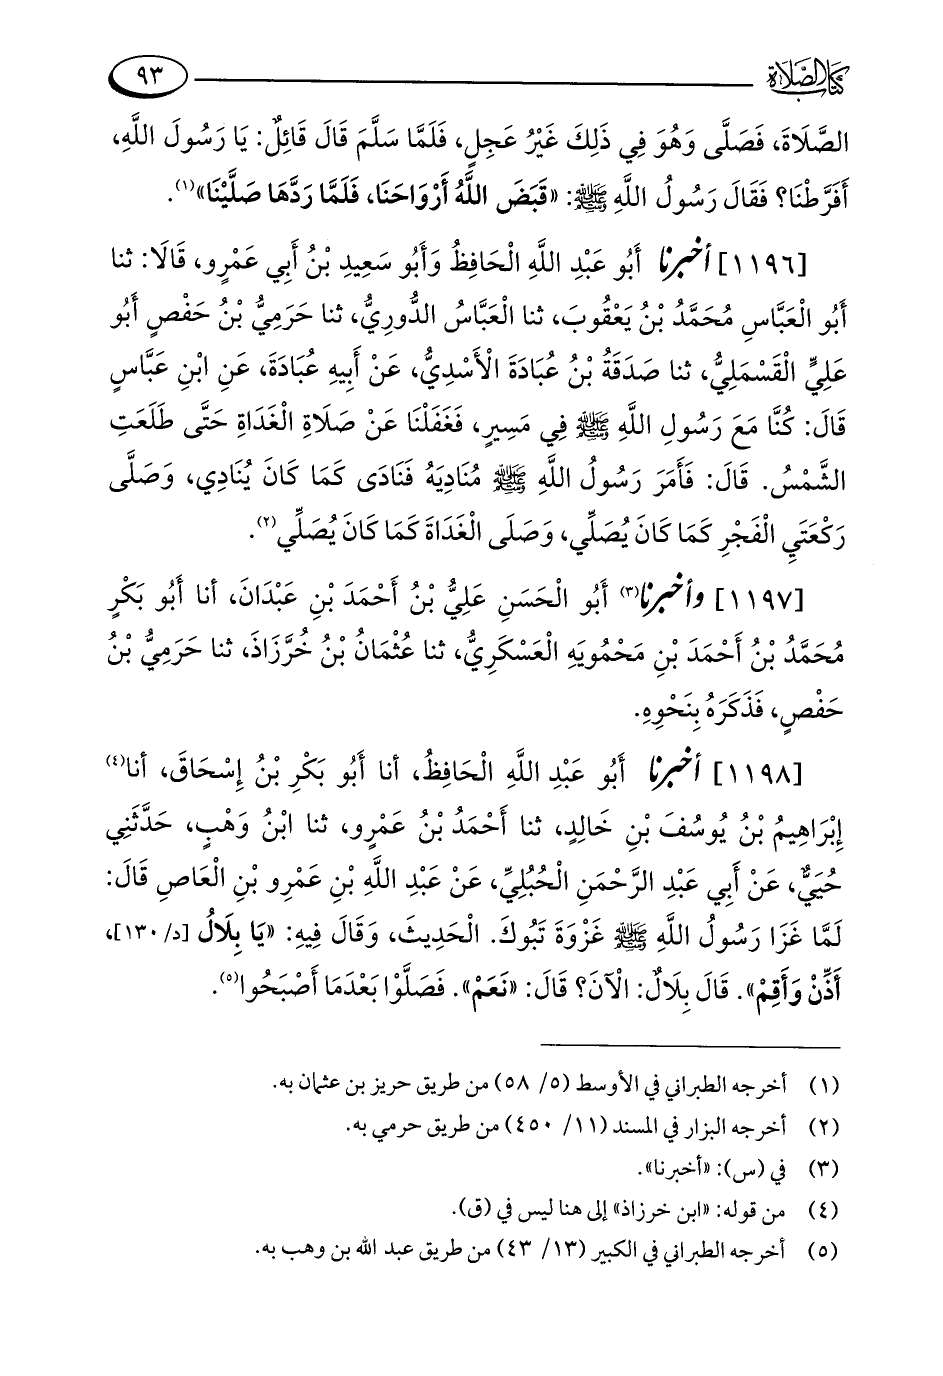 كتاب الصلاة ٩٣
الصَّلَاةَ، فَصَلَّى وَهُوَ فِي ذَلِكَ غَيْرُ عَجِلٍ، فَلَمَّا سَلَّمَ قَالَ قَائِلٌ: يَا رَسُولَ اللَّهِ،
أَفَرَّطْنَا؟ فَقَالَ رَسُولُ اللَّهِ ﷺ: «قَبَضَ اللَّهُ أَرْوَاحَنَا، فَلَمَّا رَدَّهَا صَلَّيْنَا»(١).
[١١٩٦] أخبرنا أَبُو عَبْدِ اللَّهِ الْحَافِظُ وَأَبُو سَعِيدِ بْنُ أَبِي عَمْرٍو، قَالَا: ثنا
أَبُو الْعَبَّاسِ مُحَمَّدُ بْنُ يَعْقُوبَ، ثنا الْعَبَّاسُ الدُّورِيُّ، ثنا حَرَمِيُّ بْنُ حَفْصٍ أَبُو
عَلِيٍّ الْقَسْمَلِيُّ، ثنا صَدَقَةُ بْنُ عُبَادَةَ الْأَسْدِيُّ، عَنْ أَبِيهِ عُبَادَةَ، عَنِ ابْنِ عَبَّاسٍ
قَالَ: كُنَّا مَعَ رَسُولِ اللَّهِ ﷺ فِي مَسِيرٍ، فَغَفَلْنَا عَنْ صَلَاةِ الْغَدَاةِ حَتَّى طَلَعَتِ
الشَّمْسُ. قَالَ: فَأَمَرَ رَسُولُ اللَّهِ ﷺ مُنَادِيَهُ فَنَادَى كَمَا كَانَ يُنَادِي، وَصَلَّى
رَكْعَتَيِ الْفَجْرِ كَمَا كَانَ يُصَلِّي، وَصَلَى الْغَدَاةَ كَمَا كَانَ يُصَلِّي(٢).
[١١٩٧] وأخبرنا(٣) أَبُو الْحَسَنِ عَلِيُّ بْنُ أَحْمَدَ بْنِ عَبْدَانَ، أنا أَبُو بَكْرٍ
مُحَمَّدُ بْنُ أَحْمَدَ بْنِ مَحْمُويَهِ الْعَسْكَرِيُّ، ثنا عُثْمَانُ بْنُ خُرَّزَاذَ، ثنا حَرَمِيُّ بْنُ
حَفْصٍ، فَذَكَرَهُ بِنَحْوِهِ.
[١١٩٨] أخبرنا أَبُو عَبْدِ اللَّهِ الْحَافِظُ، أنا أَبُو بَكْرِ بْنُ إِسْحَاقَ، أنا(٤)
إِبْرَاهِيمُ بْنُ يُوسُفَ بْنِ خَالِدٍ، ثنا أَحْمَدُ بْنُ عَمْرٍو، ثنا ابْنُ وَهْبٍ، حَدَّثَنِي
حُيَيٌّ، عَنْ أَبِي عَبْدِ الرَّحْمَنِ الْحُبُلِيِّ، عَنْ عَبْدِ اللَّهِ بْنِ عَمْرِو بْنِ الْعَاصِ قَالَ:
لَمَّا غَزَا رَسُولُ اللَّهِ ﷺ غَزْوَةَ تَبُوكَ. الْحَدِيثَ، وَقَالَ فِيهِ: «يَا بِلَالُ [د/ ١٣٠]،
أَذِّنْ وَأَقِمْ». قَالَ بِلَالٌ: الْآنَ؟ قَالَ: «نَعَمْ». فَصَلَّوْا بَعْدَمَا أَصْبَحُوا(٥).
(١) أخرجه الطبراني في الأوسط (٥/ ٥٨) من طريق حريز بن عثمان به.
(٢) أخرجه البزار في المسند (١١/ ٤٥٠) من طريق حرمي به.
(٣) في (س): «أخبرنا».
(٤) من قوله: «ابن خرزاذ» إلى هنا ليس في (ق).
(٥) أخرجه الطبراني في الكبير (١٣/ ٤٣) من طريق عبد الله بن وهب به.